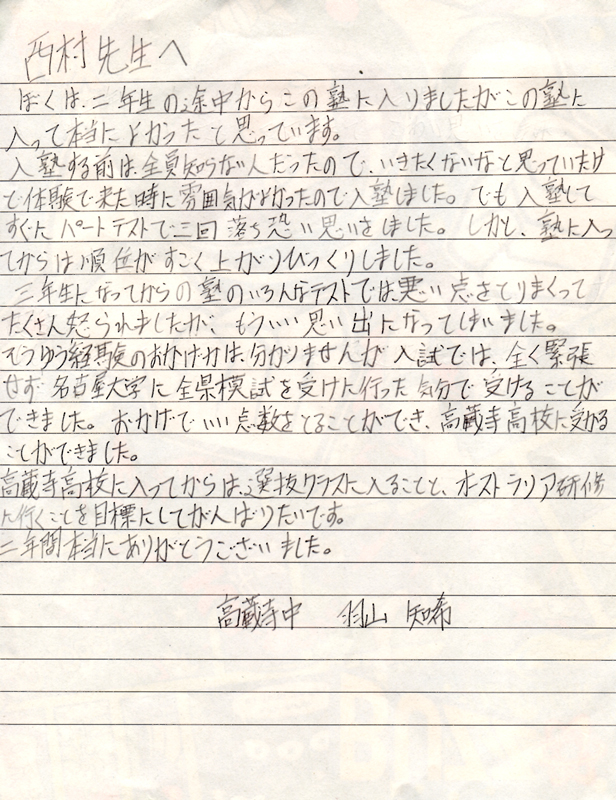 西村先生へ
ぼくは、二年生の途中からこの塾に入りましたがこの塾に
入って本当によかったと思っています。
入塾する前は、全員知らない人だったので、いきたくないなと思っていたけ
ど体験で来た時に雰囲気がよかったので入塾しました。でも入塾して
すぐにパートテストで三回落ち恐い思いをしました。しかし、塾に入っ
てからは順位がすごく上がりびっくりしました。
三年生になってからの塾のいろんなテストでは悪い点をとりまくって
たくさん怒られましたが、もういい思い出になってしまいました。
そうゆう経験のおかげかは、分かりませんが入試では、全く緊張
せず名古屋大学に全県模試を受けに行った気分で受けることが
できました。おかげでいい点数をとることができ、高蔵寺高校に受かる
ことができました。
高蔵寺高校に入ってからは、選抜クラスに入ることと、オーストラリア研修
に行くことを目標にしてがんばりたいです。
二年間本当にありがとうございました。
高蔵寺中 羽山 知希